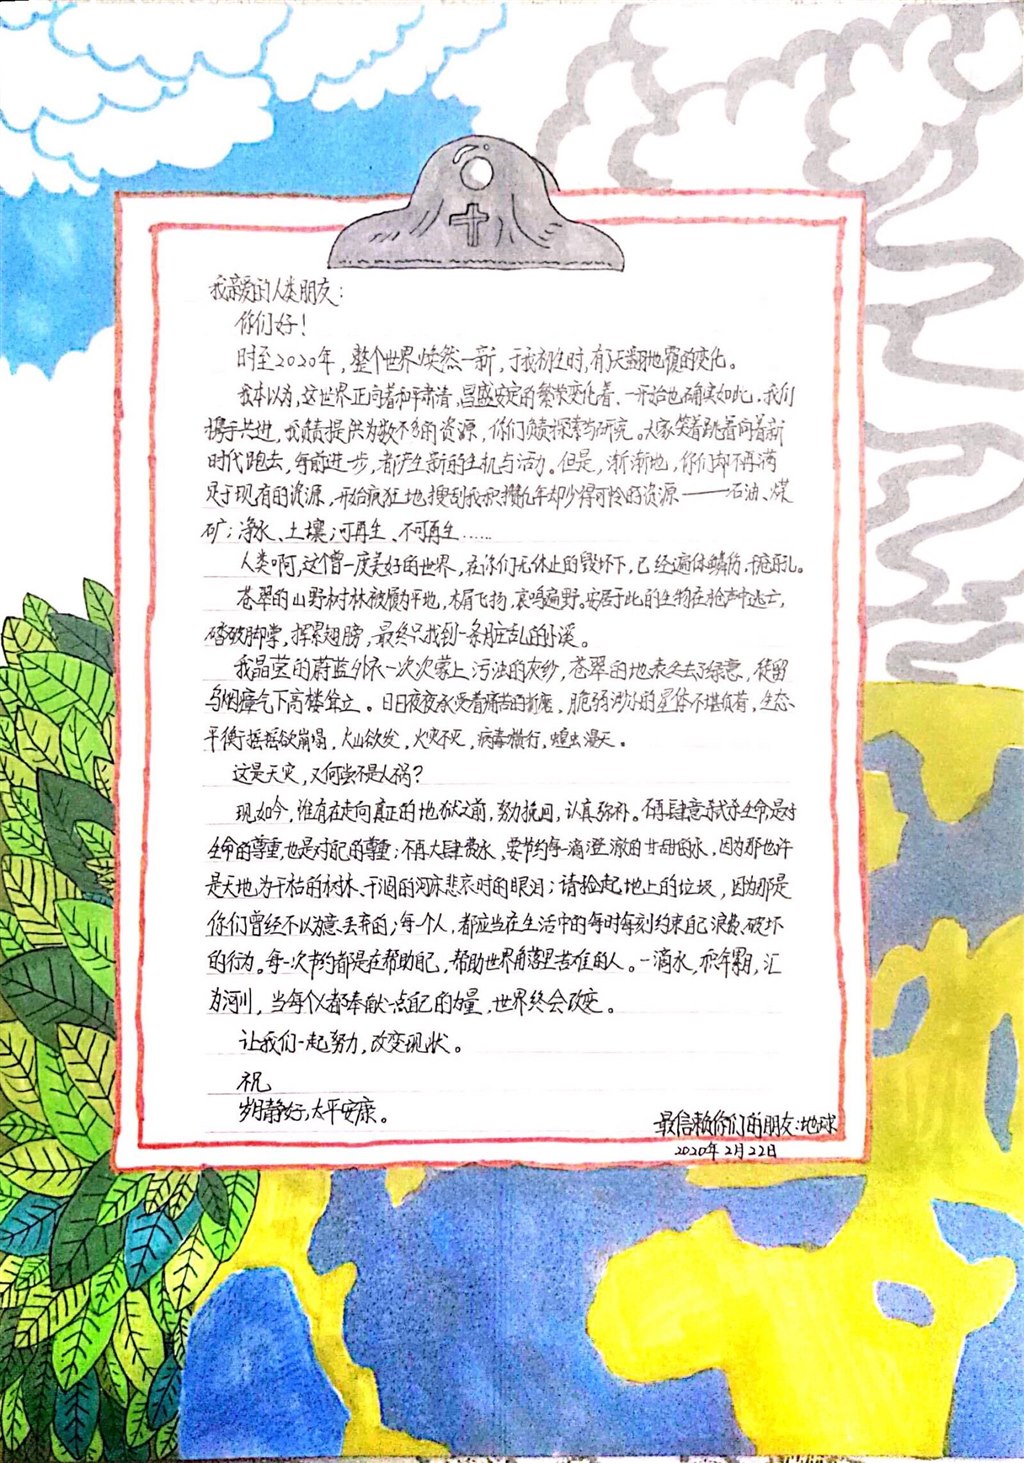 我亲爱的人类朋友：
你们好！
时至2020年，整个世界焕然一新，于我初生时，有了天翻地覆的变化。
我本以为，这世界正向着和平肃清、昌盛安定的繁荣变化着，一开始也确实如此。我们
携手共进，我负责提供为数不多的资源，你们负责探索与研究。大家笑着跳着向着新
时代跑去，每前进一步，都产生新的生机与活力。但是，渐渐地，你们却不再满
足于现有的资源，开始疯狂地搜刮我积攒几年却少得可怜的资源——石油、煤
矿；净水、土壤；可再生、不可再生……
人类啊，这个曾一度美好的世界，在你们无休止的毁坏下，已经遍体鳞伤，千疮百孔。
苍翠的山野树林被履为平地，木屑飞扬，哀鸣遍野。安居于此的生物在枪声中逃亡，
磨破脚掌，挥累翅膀，最终只找到一条脏乱的小溪。
我晶莹的蔚蓝外衣一次次蒙上污浊的灰纱，苍翠的地表失去了绿意，徒留
乌烟瘴气下高楼耸立。日日夜夜承受着痛苦的折磨，脆弱渺小的星体不堪负荷，生态
平衡摇摇欲崩塌，火山欲发，火灾不灭，病毒横行，蝗虫漫天。
这是天灾，又何尝不是人祸？
现如今，唯有在走向真正的地狱之前，努力挽回，认真弥补。不再肆意弑杀生命，是对
生命的尊重，也是对自己的尊重；不再大肆费水，要节约每一滴澄澈的甘甜的水，因为那也许
是天地为干枯的树木、干涸的河床悲哀时的眼泪；请捡起地上的垃圾，因为那是
你们曾经不以为意丢弃的；每一个人，都应当在生活中的每时每刻约束自己浪费、破坏
的行为。每一次节约都是在帮助自己，帮助世界角落里苦难的人。一滴水，积年累月，汇
为河川，当每个人都奉献一点自己的力量，世界终会改变。
让我们一起努力，改变现状。
祝
岁月静好，太平安康。
最信赖你们的朋友：地球
2020年2月22日